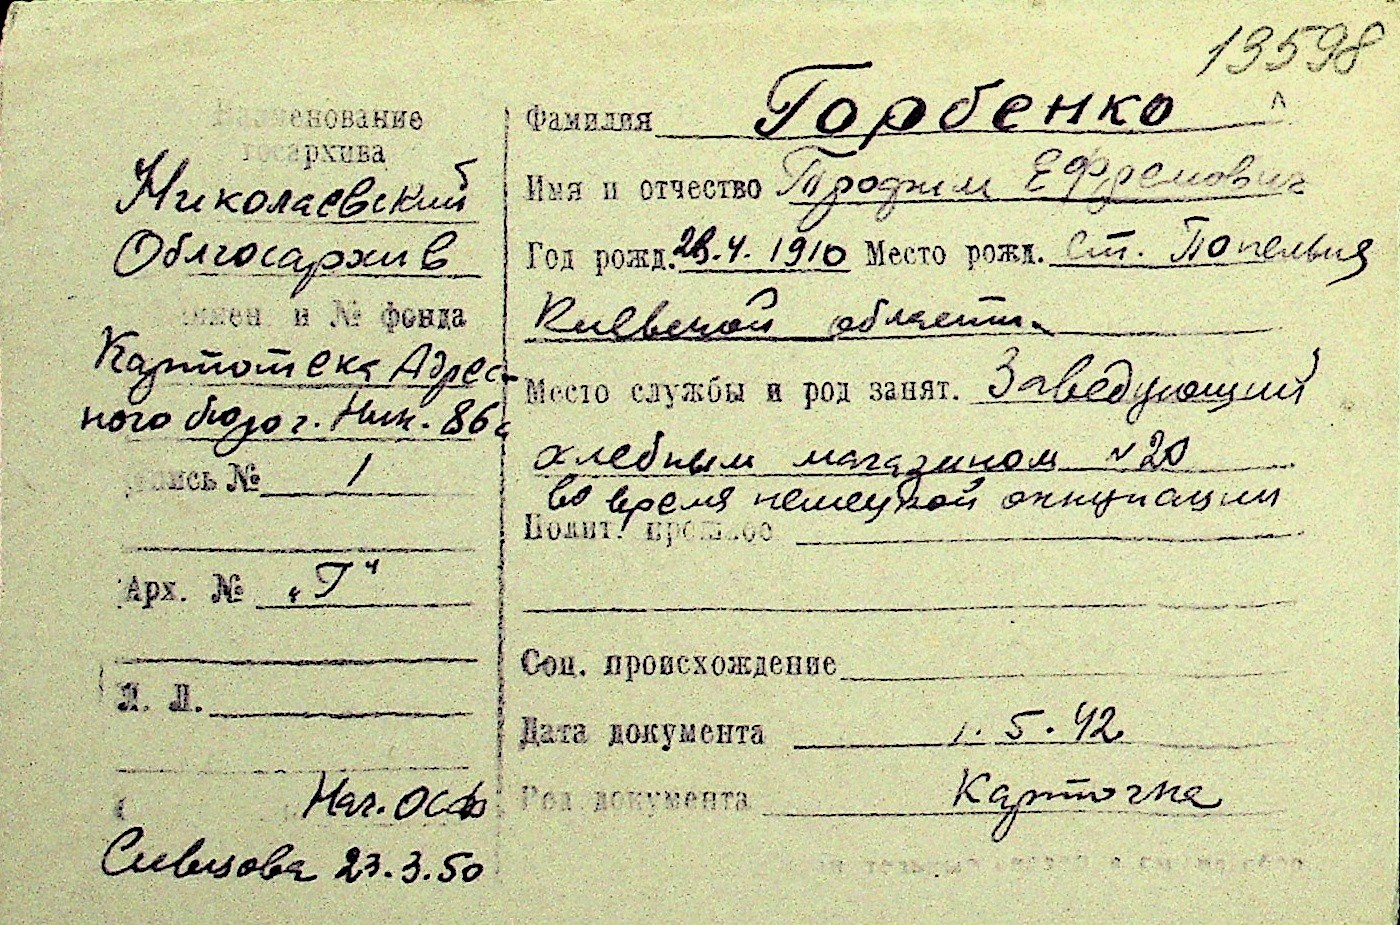 13598
Наименование
госархива
Николаевский
Облгосархив
имен и № фонда
Картотека Адрес-
ного бюро г. Ник. 86с
опись № 1
Арх. № "Г"
Л. Л.
Нач. ОСФ
Сивцова 23.3.50
Фамилия Горбенко
Имя и отчество Трофим Ефремович
Год рожд. 4. 1910 Место рожд. ст. Попельня
Киевской области
Место службы и род занят. Заведующий
хлебным магазином № 20
во время немецкой оккупации
Полит. прошлое
Соц. происхождение
Дата документа 1. 5. 42
Род документа Карточка